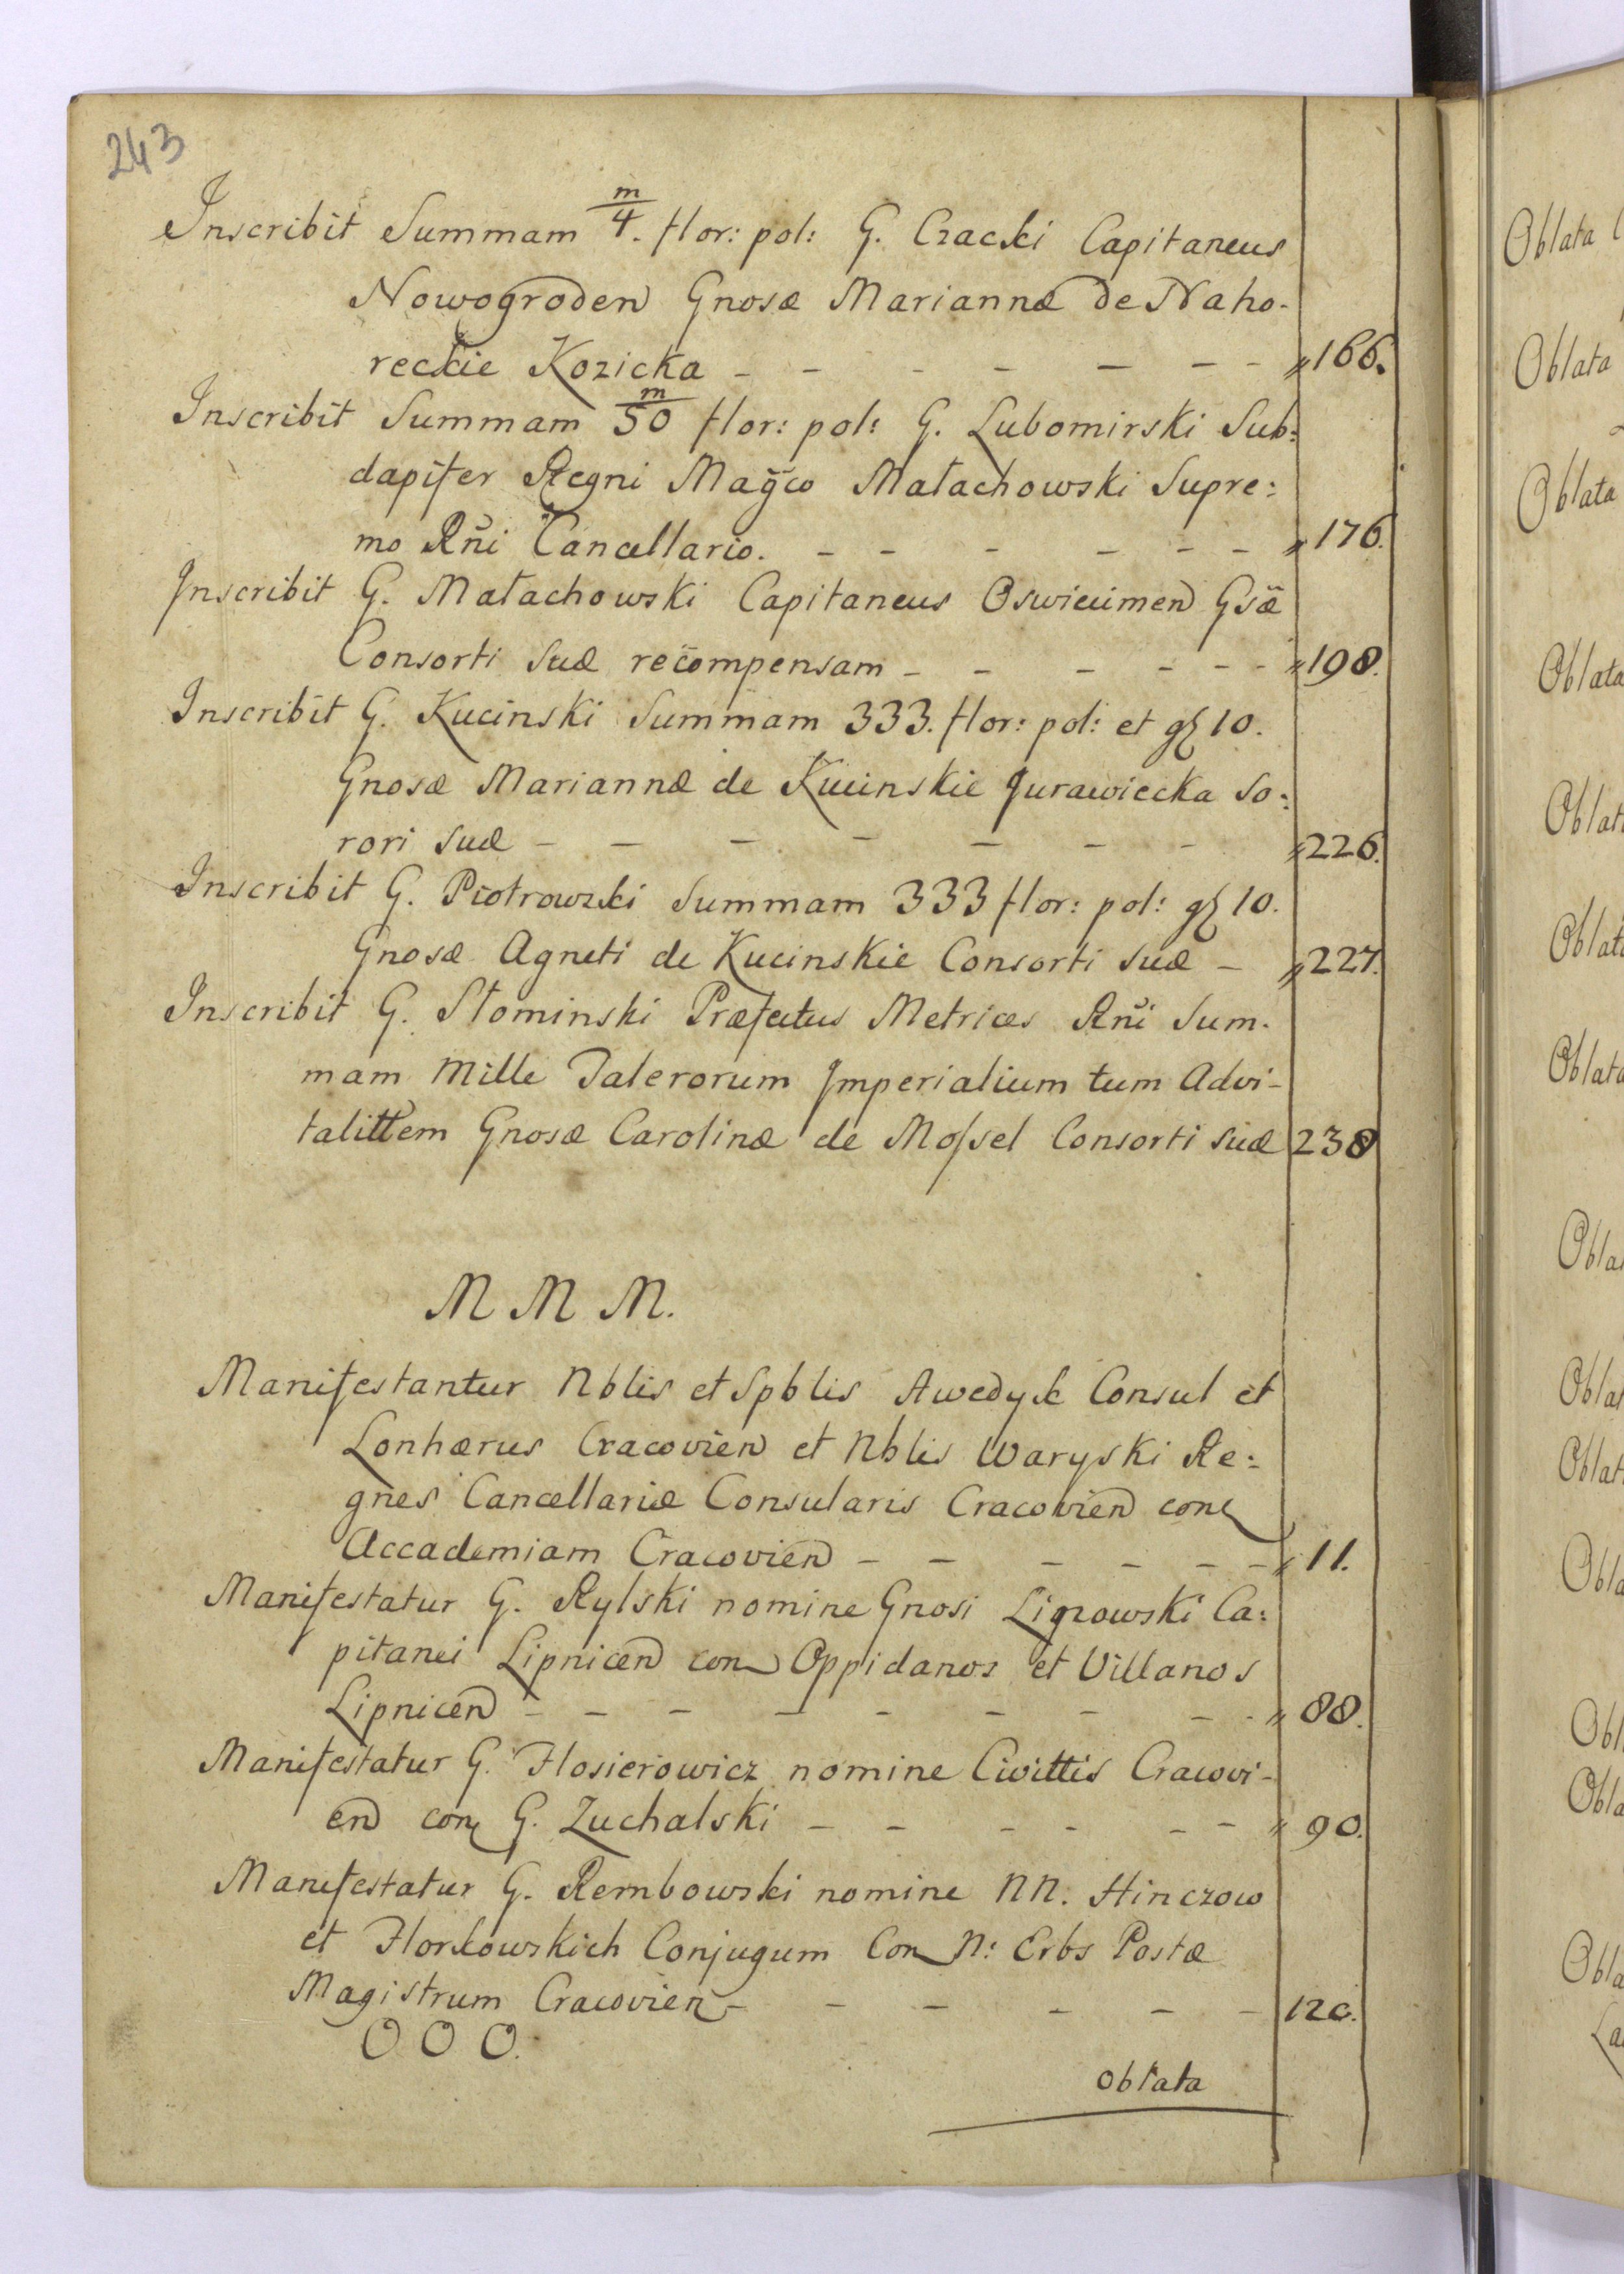 243
Inscribit Summam m/4. flor: pol: G. Czacki Capitaneus
Nowogroden Gnosæ Mariannæ de Naho-
reckie Kozicka - - - - - - - „166.
Inscribit Summam m/50 flor: pol: G. Lubomirski Sub:
dapifer Regni Magco Małachowski Supre:
mo Rñi Cancellario. - - - - - - „176.
Inscribit G. Małachowski Capitaneus Oswiecimen Gsæ
Consorti suæ recompensam - - - - - - „198.
Inscribit G. Kucinski Summam 333. flor: pol: et gʒ 10.
Gnosæ Mariannæ de Kucinskie Jurawiecka So:
rori suæ - - - - - - - „226.
Inscribit G. Piotrowski Summam 333 flor: pol: gʒ 10.
Gnosæ Agneti de Kucinskie Consorti suæ - „227.
Inscribit G. Słominski Præfectus Metrices Rñi Sum-
mam Mille Talerorum Imperialium tum Advi-
talittem Gnosæ Carolinæ de Mossel Consorti suæ 238
M M M.
Manifestantur Nblis et Spblis Awedyk Consul et
Lonhærus Cracovien et Nblis Waryski Re:
gñes Cancellariæ Consularis Cracovien con
Accademiam Cracovien - - - - - - „11.
Manifestatur G. Rylski nomine Gnosi Lipowski Ca:
pitanei Lipnicen con Oppidanos et Villanos
Lipnicen - - - - - - - - - „88.
Manifestatur G. Flosierowicz nomine Civittis Cracovi-
en con G. Zuchalski - - - - - - „90.
Manifestatur G. Rembowski nomine NN. Hinczow
et Florkowskich Conjugum Con N: Erbs Postæ
Magistrum Cracovien - - - - - - 120.
O O O.
oblata
Oblata
Oblata
Oblata
Oblata